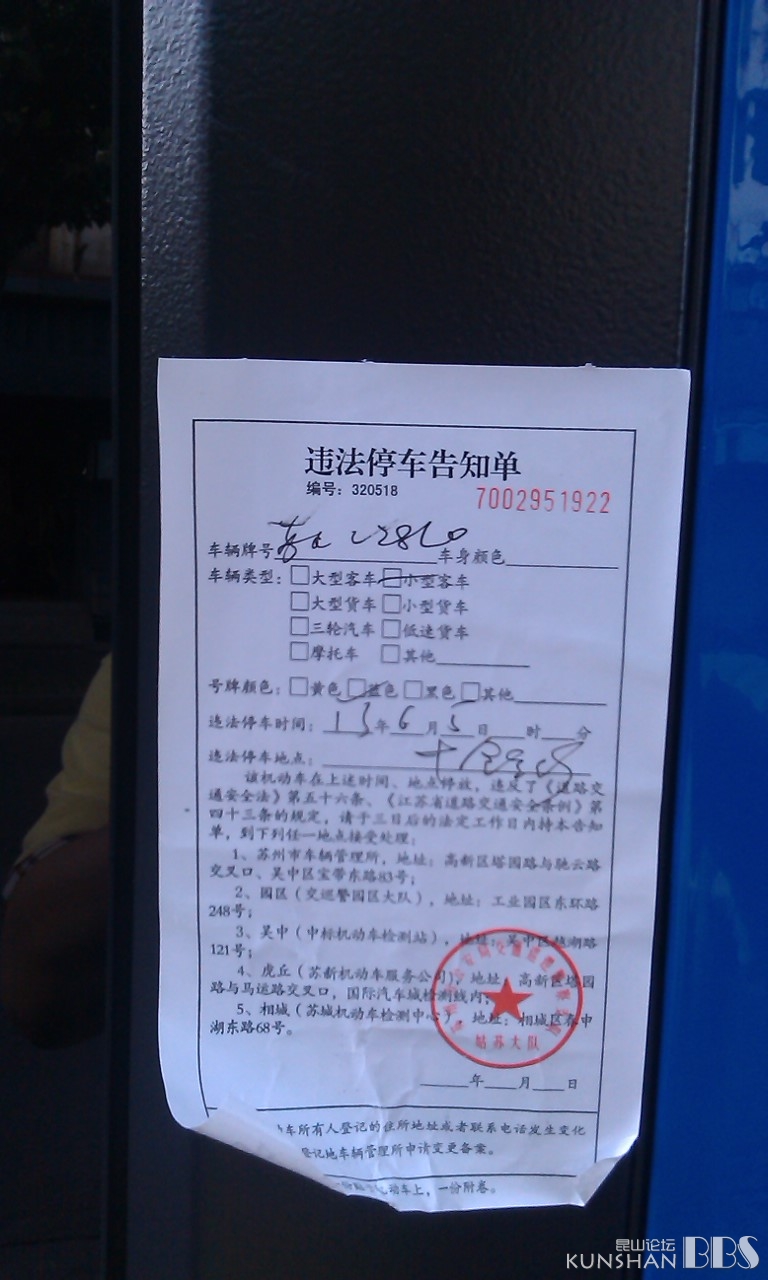 违法停车告知单
编号：320518
7002951922
车辆牌号 车身颜色
车辆类型： 大型客车 小型客车
大型货车 小型货车
三轮汽车 低速货车
摩托车 其他
号牌颜色： 黄色 蓝色 黑色 其他
违法停车时间： 13 年 6 月 5 日 时 分
违法停车地点： 十全
该机动车在上述时间、地点停放，违反了《道路交
通安全法》第五十六条、《江苏省道路交通安全条例》第
四十三条的规定，请于三日后的法定工作日内持本告知
单，到下列任一地点接受处理：
1、苏州市车辆管理所，地址：高新区塔园路与驰云路
交叉口、吴中区宝带东路83号；
2、园区（交巡警园区大队），地址：工业园区东环路
248号；
3、吴中（中标机动车检测站），地址：吴中区越湖路
121号；
4、虎丘（苏新机动车服务公司），地址：高新区塔园
路与马运路交叉口，国际汽车城检测线内；
5、相城（苏城机动车检测中心），地址：相城区春申
湖东路68号。
姑苏大队
年 月 日
车所有人登记的住所地址或者联系电话发生变化
登记地车辆管理所申请变更备案。
动车上，一份附卷。
昆山论坛
KUNSHAN BBS